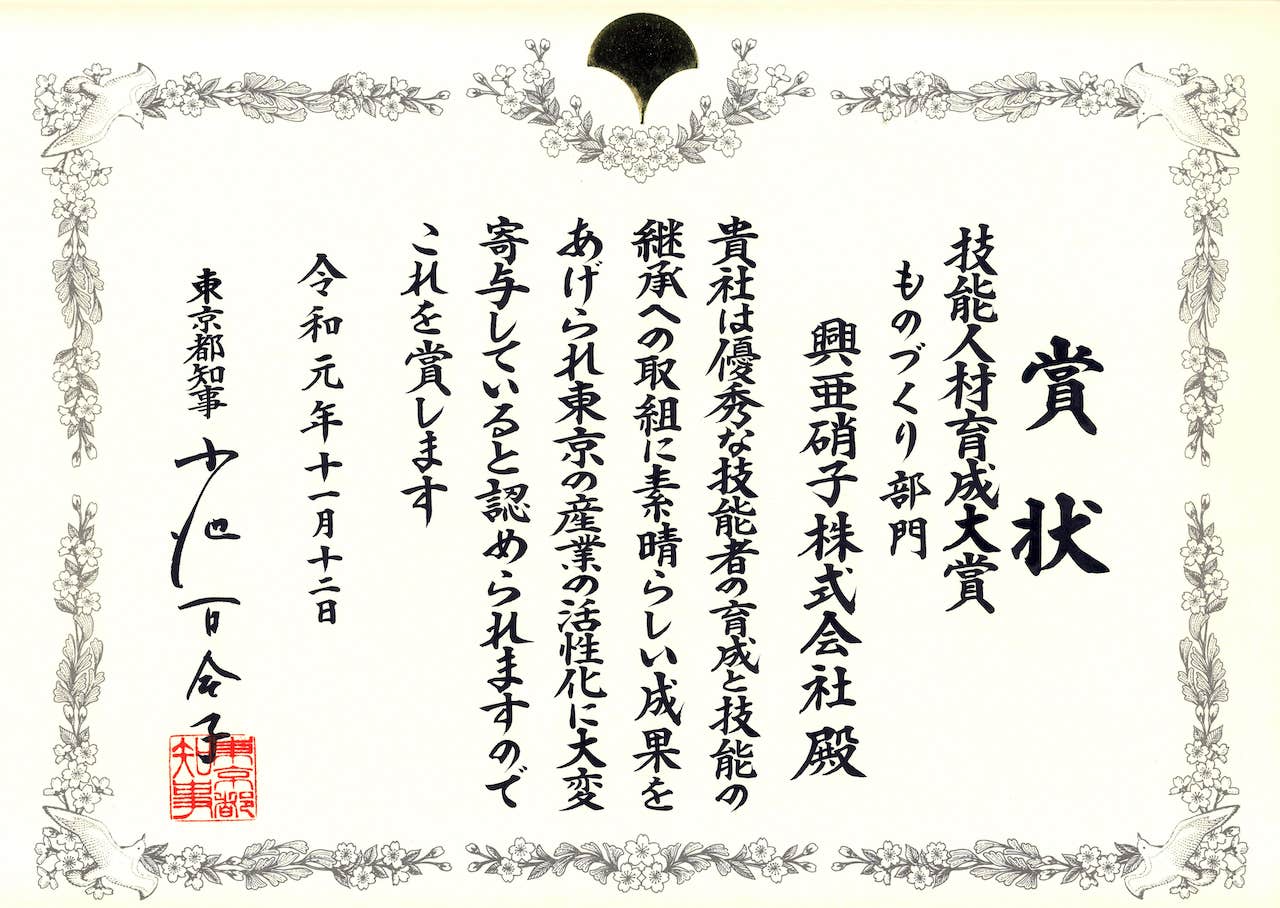 賞状
技能人材育成大賞
ものづくり部門
興亜硝子株式会社殿
貴社は優秀な技能者の育成と技能の
継承への取組に素晴らしい成果を
あげられ東京の産業の活性化に大変
寄与していると認められますので
これを賞します
令和元年十一月十二日
東京都知事 小池百合子
東京都
知事